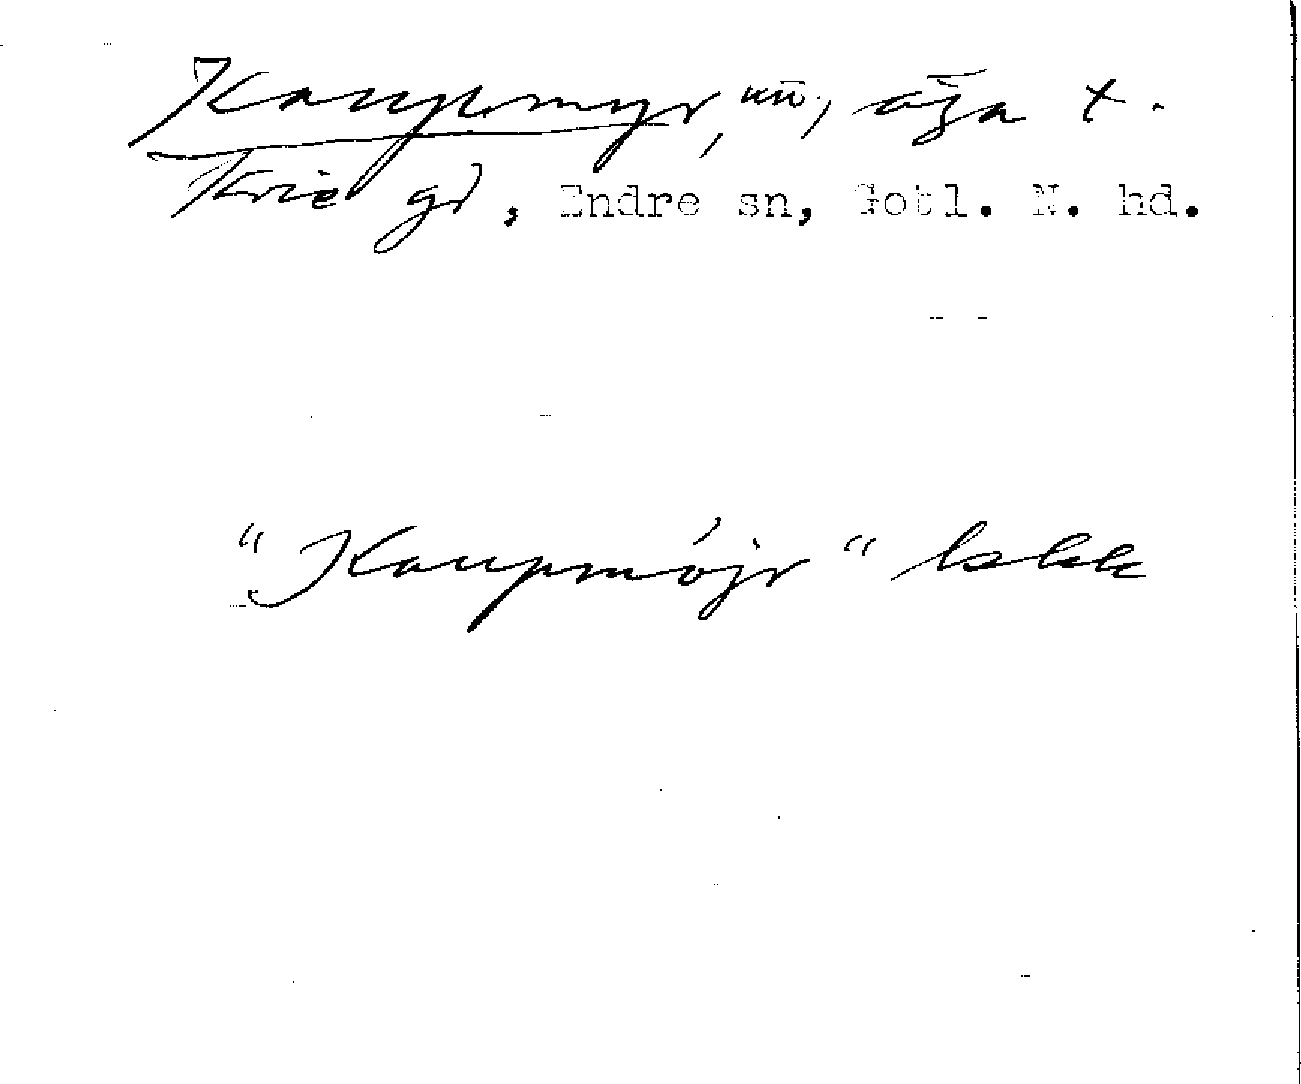 Kaupmyr, äga t.
Kvie gd, Endre sn, Gotl. N. hd.
"Kaupmöjr" lskk